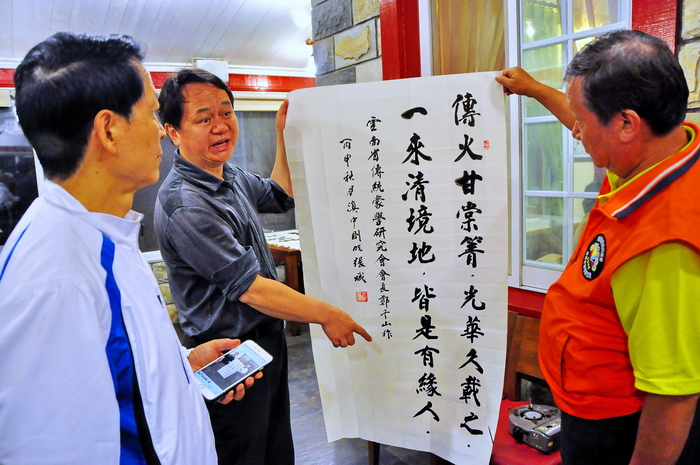 傳火甘棠箐．光華久載之．
一來清境地．皆是有緣人．
雲南省傳統蒙學研究會會長鄭千山作
丙申秋月滇中剛
張斌